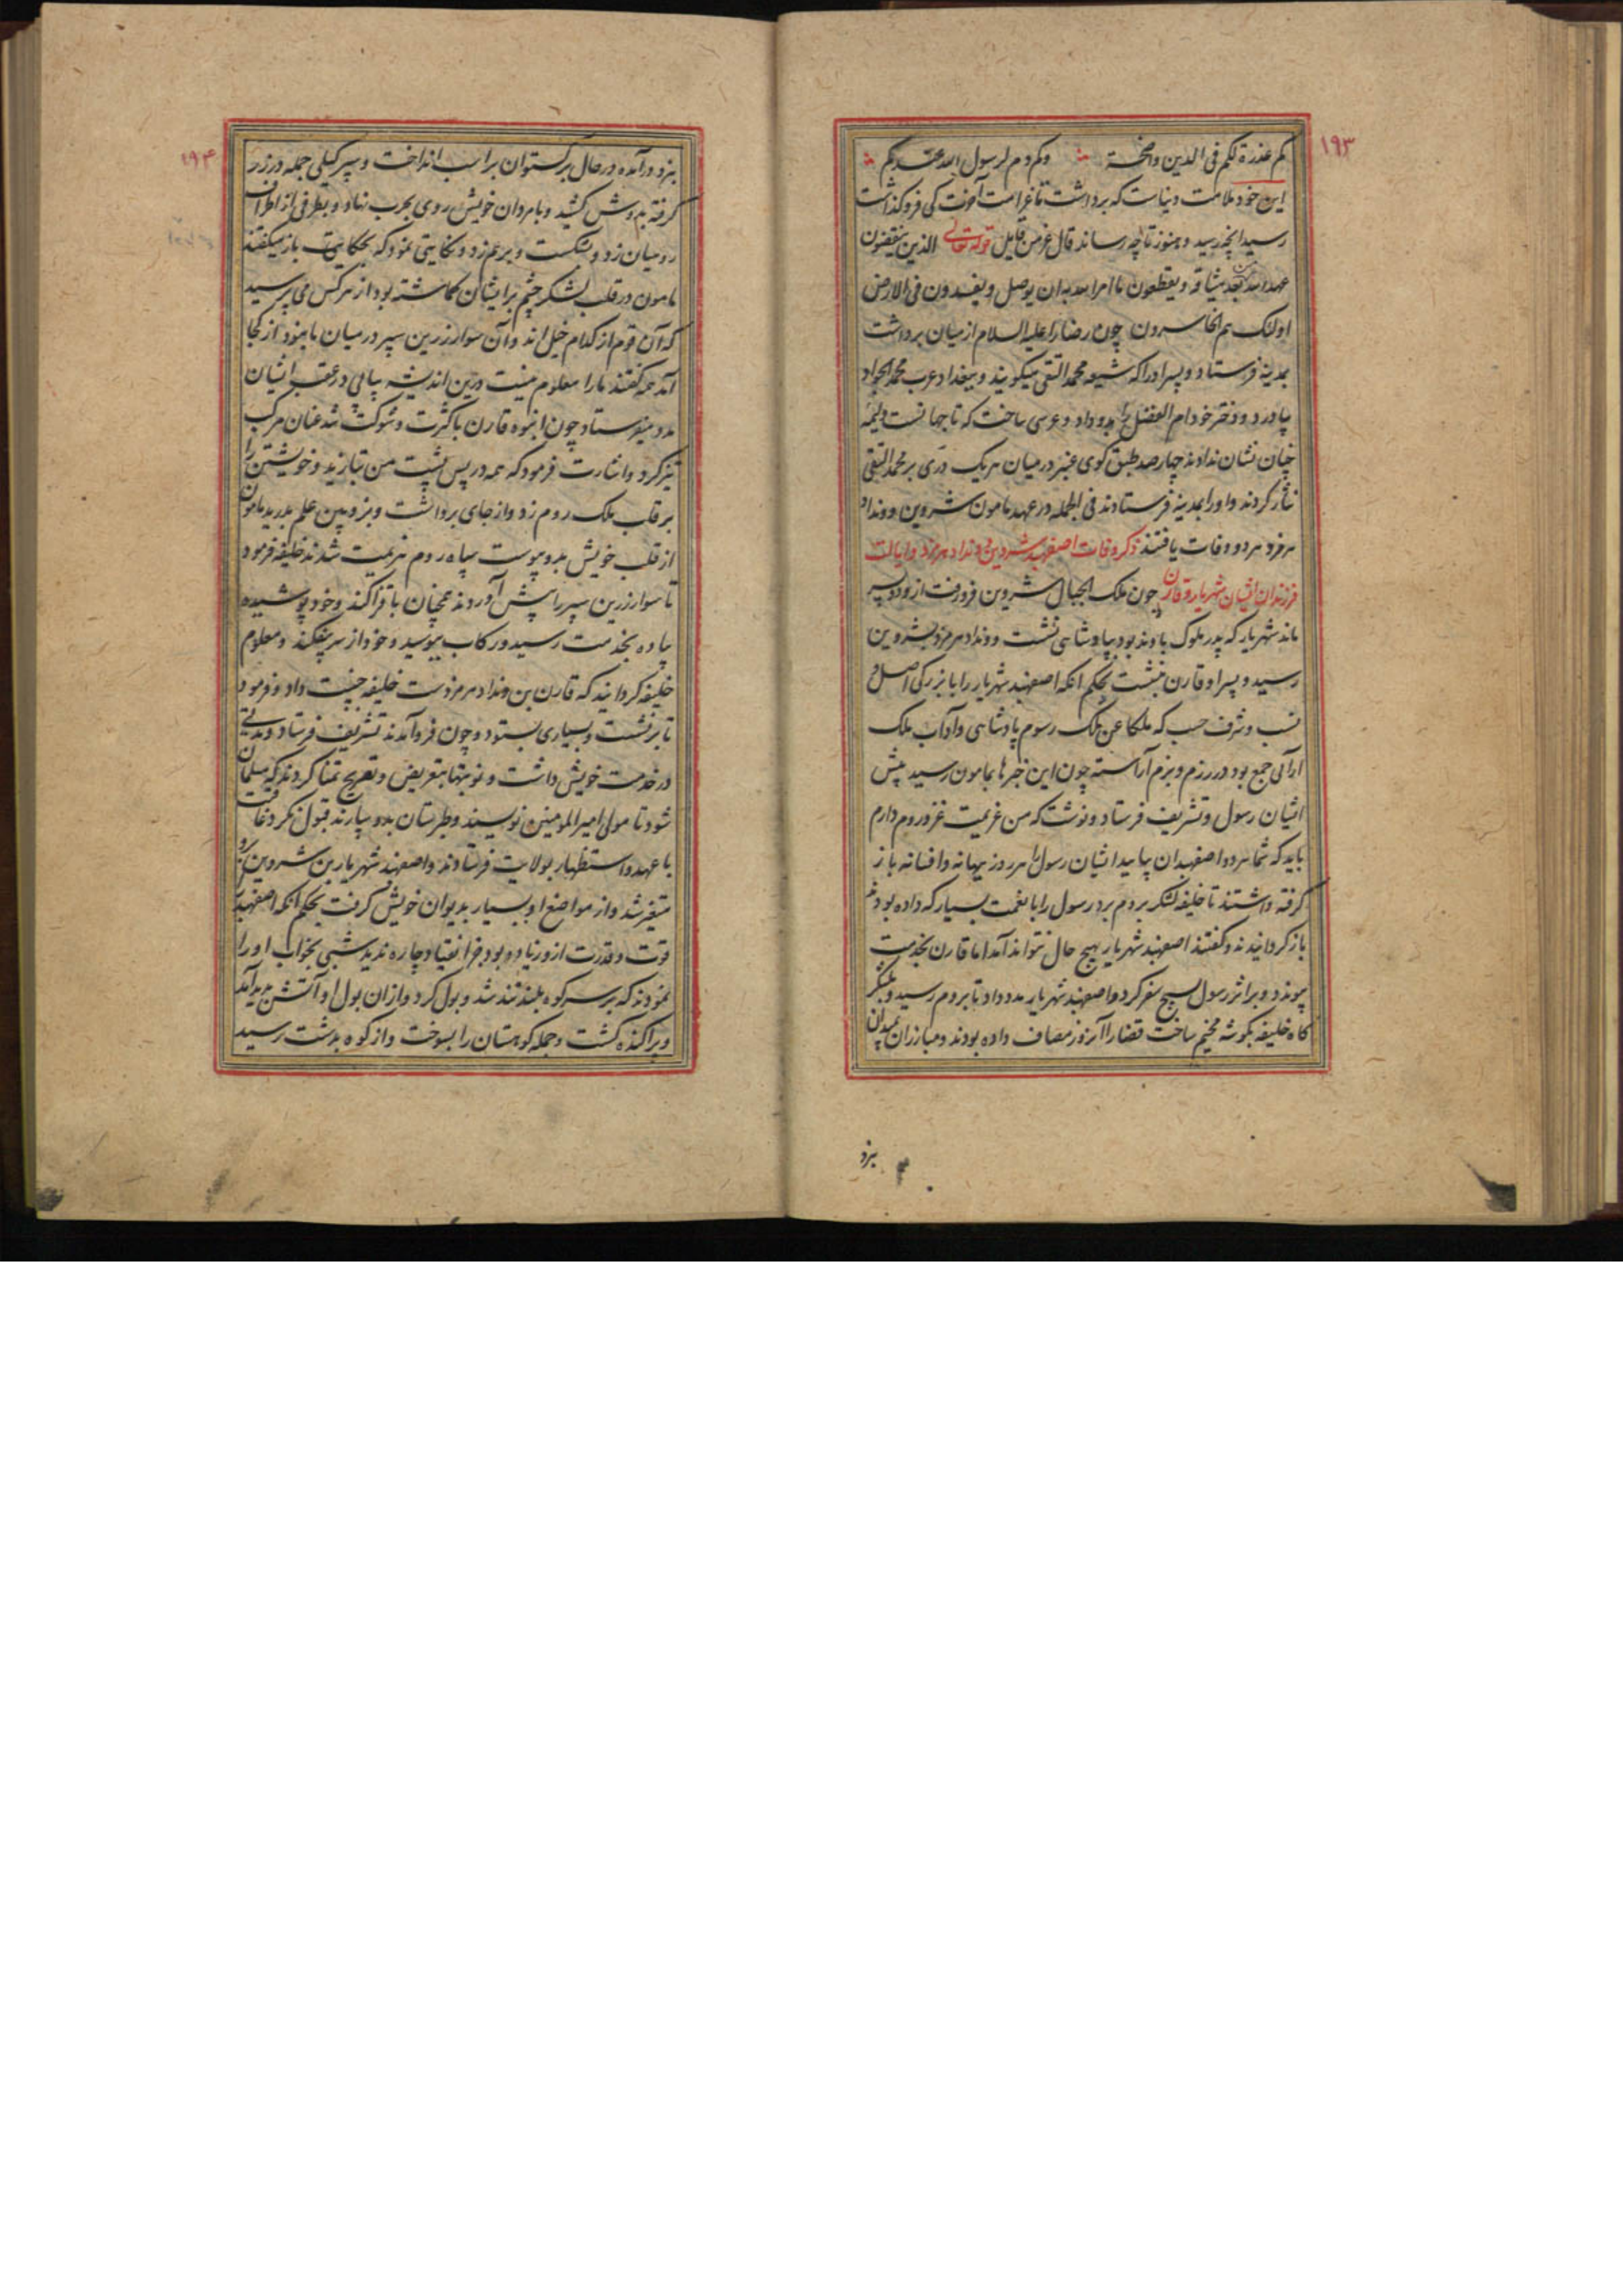 ۱۹۳
کم غدرة لکم فی الدین واضحة وکم دم لرسول الله عندکم
این خود ملامت دنیاست که برداشت تا غرامت آخرت کی فرو گذاشت
رسید انچه رسید و هنوز تا چه رساند قال عز من قایل قوله تعالی الذین ینقضون
عهد الله من بعد میثاقه و یقطعون ما امر الله به ان یوصل و یفسدون فی الارض
اولئک هم الخاسرون چون رضا را علیه السلام از میان برداشت
بمدینه فرستاد و پسر او را که شیعه محمد التقی میگویند و ببغداد عرب محمد الجواد
بیاورد و دختر خود ام الفضل را بدو داد و عروسی ساخت که تا جهانست ولیمه
چنان نشان ندادند چهارصد طبق گوی عنبر در میان هر یک دری بر محمد التقی
نثار کردند و او را بمدینه فرستادند فی الجمله در عهد مامون شروین و ونداد
هرمزد هر دو وفات یافتند ذکر وفات اصفهبد شروین و ونداد هرمزد و ایالت
فرزندان ایشان شهریار و قارن چون ملک الجبال شروین فرو رفت ازو دو پسر
ماند شهریار که پدر ملوک باوند بود بپادشاهی نشست و ونداد هرمزد بشروین
رسید و پسر او قارن بنشست بحکم انکه اصفهبد شهریار را با بزرگی اصل و
نسب و شرف حسب که ملکا عن ملک رسوم پادشاهی و آداب ملک
آرائی جمع بود در رزم و بزم آراسته چون این خبرها بمامون رسید پیش
ایشان رسول و تشریف فرستاد و نوشت که من عزیمت غزو روم دارم
باید که شما هر دو اصفهبدان بیایید ایشان رسول را هر روز ببهانه و افسانه باز
گرفته داشتند تا خلیفه لشکر بروم برد رسول را با نعمت بسیار که داده بودند
باز گردانیدند و گفتند اصفهبد شهریار بهیچ حال نتواند آمد اما قارن بخدمت
پیوندد و بر اثر رسول بسیج سفر کرد و اصفهبد شهریار مدد داد تا بروم رسید و بلشکر
گاه خلیفه بگوشه مخیم ساخت قضا را آنروز مصاف داده بودند و مبارزان بمیدان
بنزد
۱۹۴
بنزد درآمده در حال برگستوان بر اسب انداخت و سپر گیلی جمله در زر
گرفته بدوش کشید و با مردان خویش روی بحرب نهاد و بطرفی از اطراف
رومیان زد و بشکست و برهم زد و نکایتی نمود که بحکایت باز میگفتند
مامون در قلب لشکر چشم بر ایشان گماشته بود از هر کس می پرسید
که آن قوم از کدام خیل اند و آن سوار زرین سپر در میان ما نبود از کجا
آمد همه گفتند ما را معلوم نیست درین اندیشه پیاپی در عقب ایشان
مدد میفرستاد چون انبوه قارن با کثرت و شوکت شد عنان مرکب
تیز کرد و اشارت فرمود که همه در پس پشت من بتازید و خویشتن را
بر قلب ملک روم زد و از جای برداشت و بزوبین علم بدرید مامون
از قلب خویش بدو پیوست سپاه روم هزیمت شدند خلیفه فرمود
تا سوار زرین سپر را پیش آوردند همچنان با قزاکند و خود پوشیده
پیاده بخدمت رسید و رکاب ببوسید و خود از سر بیفکند و معلوم
خلیفه گردانید که قارن بن ونداد هرمزدست خلیفه جنیبت داد و فرمود
تا برنشست و بسیاری بستود و چون فرو آمدند تشریف فرستاد و مدتی
در خدمت خویش داشت و نوبتها بتعریض و تصریح تمنا کردند که مسلمان
شود تا مولی امیر المومنین نویسند و طبرستان بدو سپارند قبول نکرد عاقبت
با عهد و استظهار بولایت فرستادند و اصفهبد شهریار بن شروین برو
متغیر شد و از مواضع او بسیار بدیوان خویش گرفت بحکم انکه اصفهبد را
قوت و قدرت ازو زیاده بود جز انقیاد چاره ندید شبی بخواب او را
نمودند که بر سر کوه بلند تند شد و بول کرد و ازان بول او آتش پدید آمد
و پراکنده گشت و جمله کوهستان را بسوخت و از کوه بدشت رسید